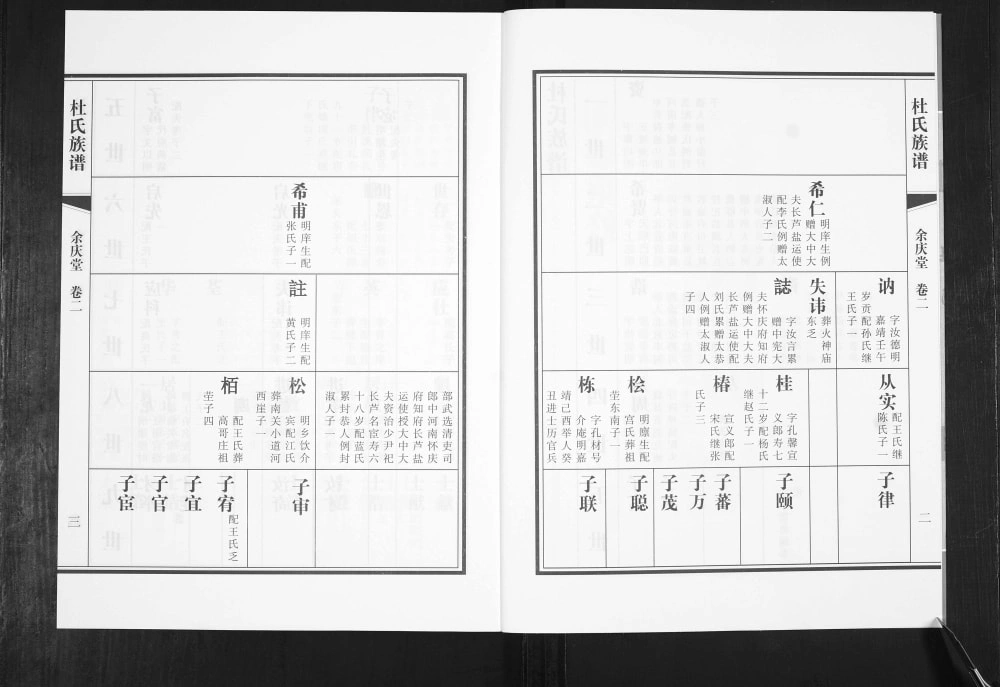 杜氏族谱
余庆堂 卷二
二
希仁
明庠生例
赠大中大
夫长芦盐运使
配李氏例赠太
淑人子二
讷
字汝德明
嘉靖壬午
岁贡配孙氏继
王氏子一
失讳
葬火神庙
东乏
誌
字汝言累
赠中宪大
夫怀庆府知府
例赠大中大夫
长芦盐运使配
刘氏累赠太恭
人例赠太淑人
子四
从实
配王氏继
陈氏子一
桂
字孔馨宣
义郎寿七
十二岁配杨氏
继赵氏子一
椿
宣义郎配
宋氏继张
氏子三
桧
明廪生配
宫氏葬祖
茔东南子一
栋
字孔材号
介庵明嘉
靖己酉举人癸
丑进士历官兵
子律
子颐
子蕃
子万
子茂
子聪
子联
希甫
明庠生配
张氏子一
註
明庠生配
黄氏子二
部武选清吏司
郎中河南怀庆
府知府长芦盐
运使授大中大
夫资治少尹祀
长芦名宦寿六
十八岁配蓝氏
累封恭人例封
淑人子一
松
明乡饮介
宾配江氏
葬南关小道河
西崖子一
栢
配王氏葬
高哥庄祖
茔子四
子审
子宥
配王氏乏
子宜
子官
子宦
杜氏族谱
余庆堂 卷二
三